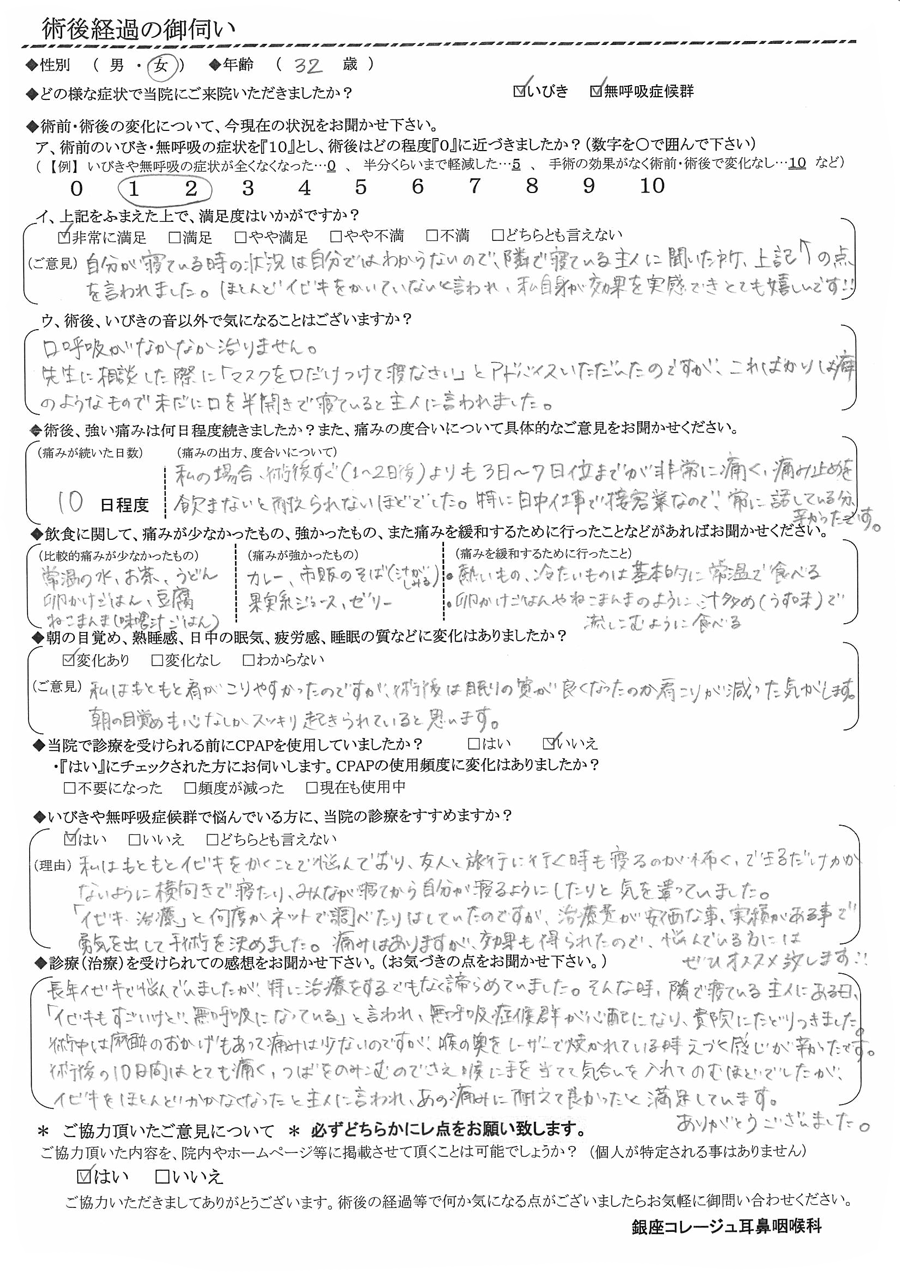 術後経過の御伺い
◆性別 ( 男 ・ 女 ) ◆年齢 ( 32 歳 )
◆どの様な症状で当院にご来院いただきましたか? ☑いびき ☑無呼吸症候群
◆術前・術後の変化について、今現在の状況をお聞かせ下さい。
ア、術前のいびき・無呼吸の症状を『10』とし、術後はどの程度『0』に近づきましたか?(数字を〇で囲んで下さい)
(【例】いびきや無呼吸の症状が全くなくなった…0 、 半分くらいまで軽減した…5 、 手術の効果がなく術前・術後で変化なし…10 など)
0 1 2 3 4 5 6 7 8 9 10
イ、上記をふまえた上で、満足度はいかがですか?
☑非常に満足 □満足 □やや満足 □やや不満 □不満 □どちらとも言えない
(ご意見) 自分が寝ている時の状況は自分ではわからないので、隣で寝ている主人に聞いた所、上記↑の点
を言われました。ほとんどイビキをかいていないと言われ、私自身が効果を実感できとても嬉しいです!!
ウ、術後、いびきの音以外で気になることはございますか?
口呼吸がなかなか治りません。
先生に相談した際に「マスクを口だけつけて寝なさい」とアドバイスいただいたのですが、こればかりは癖
のようなもので未だに口を半開きで寝ていると主人に言われました。
◆術後、強い痛みは何日程度続きましたか?また、痛みの度合いについて具体的なご意見をお聞かせください。
(痛みが続いた日数) (痛みの出方、度合いについて)
私の場合、術後すぐ(1〜2日後)よりも3日〜7日位までが非常に痛く、痛み止めを
10 日程度 飲まないと耐えられないほどでした。特に日中仕事で接客業なので、常に話している分、
辛かったです。
◆飲食に関して、痛みが少なかったもの、強かったもの、また痛みを緩和するために行ったことなどがあればお聞かせください。
(比較的痛みが少なかったもの) (痛みが強かったもの) (痛みを緩和するために行ったこと)
常温の水、お茶、うどん カレー、市販のそば(汁がしみる) ・熱いもの、冷たいものは基本的に常温で食べる
卵かけごはん、豆腐 果実系ジュース、ゼリー ・卵かけごはんやねこまんまのように、汁多め(うす味)で
ねこまんま(味噌汁ごはん) 流しこむように食べる
◆朝の目覚め、熟睡感、日中の眠気、疲労感、睡眠の質などに変化はありましたか?
☑変化あり □変化なし □わからない
(ご意見) 私はもともと肩がこりやすかったのですが、術後は眠りの質が良くなったのか肩こりが減った気がします。
朝の目覚めも心なしかスッキリ起きられていると思います。
◆当院で診療を受けられる前にCPAPを使用していましたか? □はい ☑いいえ
・『はい』にチェックされた方にお伺いします。CPAPの使用頻度に変化はありましたか?
□不要になった □頻度が減った □現在も使用中
◆いびきや無呼吸症候群で悩んでいる方に、当院の診療をすすめますか?
☑はい □いいえ □どちらとも言えない
(理由) 私はもともとイビキをかくことで悩んでおり、友人と旅行に行く時も寝るのが怖く、できるだけかか
ないように横向きで寝たり、みんなが寝てから自分が寝るようにしたりと気を遣っていました。
「イビキ 治療」と何度かネットで調べたりはしていたのですが、治療費が安価な事、実績がある事で
勇気を出して手術を決めました。痛みはありますが、効果も得られたので、悩んでいる方には
ぜひオススメ致します!!
◆診療(治療)を受けられての感想をお聞かせ下さい。(お気づきの点をお聞かせ下さい。)
長年イビキで悩んでいましたが、特に治療をするでもなく諦らめていました。そんな時、隣で寝ている主人にある日、
「イビキもすごいけど、無呼吸になっている」と言われ、無呼吸症候群が心配になり、貴院にたどりつきました。
術中は麻酔のおかげもあって痛みは少ないのですが、喉の奥をレーザーで焼かれている時えづく感じが辛かったです。
術後の10日間はとても痛く、つばをのみこむのでさえ喉に手を当てて気合いを入れてのむほどでしたが、
イビキをほとんどかかなくなったと主人に言われ、あの痛みに耐えて良かったと満足しています。
ありがとうございました。
＊ ご協力頂いたご意見について ＊ 必ずどちらかにレ点をお願い致します。
ご協力頂いた内容を、院内やホームページ等に掲載させて頂くことは可能でしょうか? (個人が特定される事はありません)
☑はい □いいえ
ご協力いただきましてありがとうございます。術後の経過等で何か気になる点がございましたらお気軽に御問い合わせください。
銀座コレージュ耳鼻咽喉科